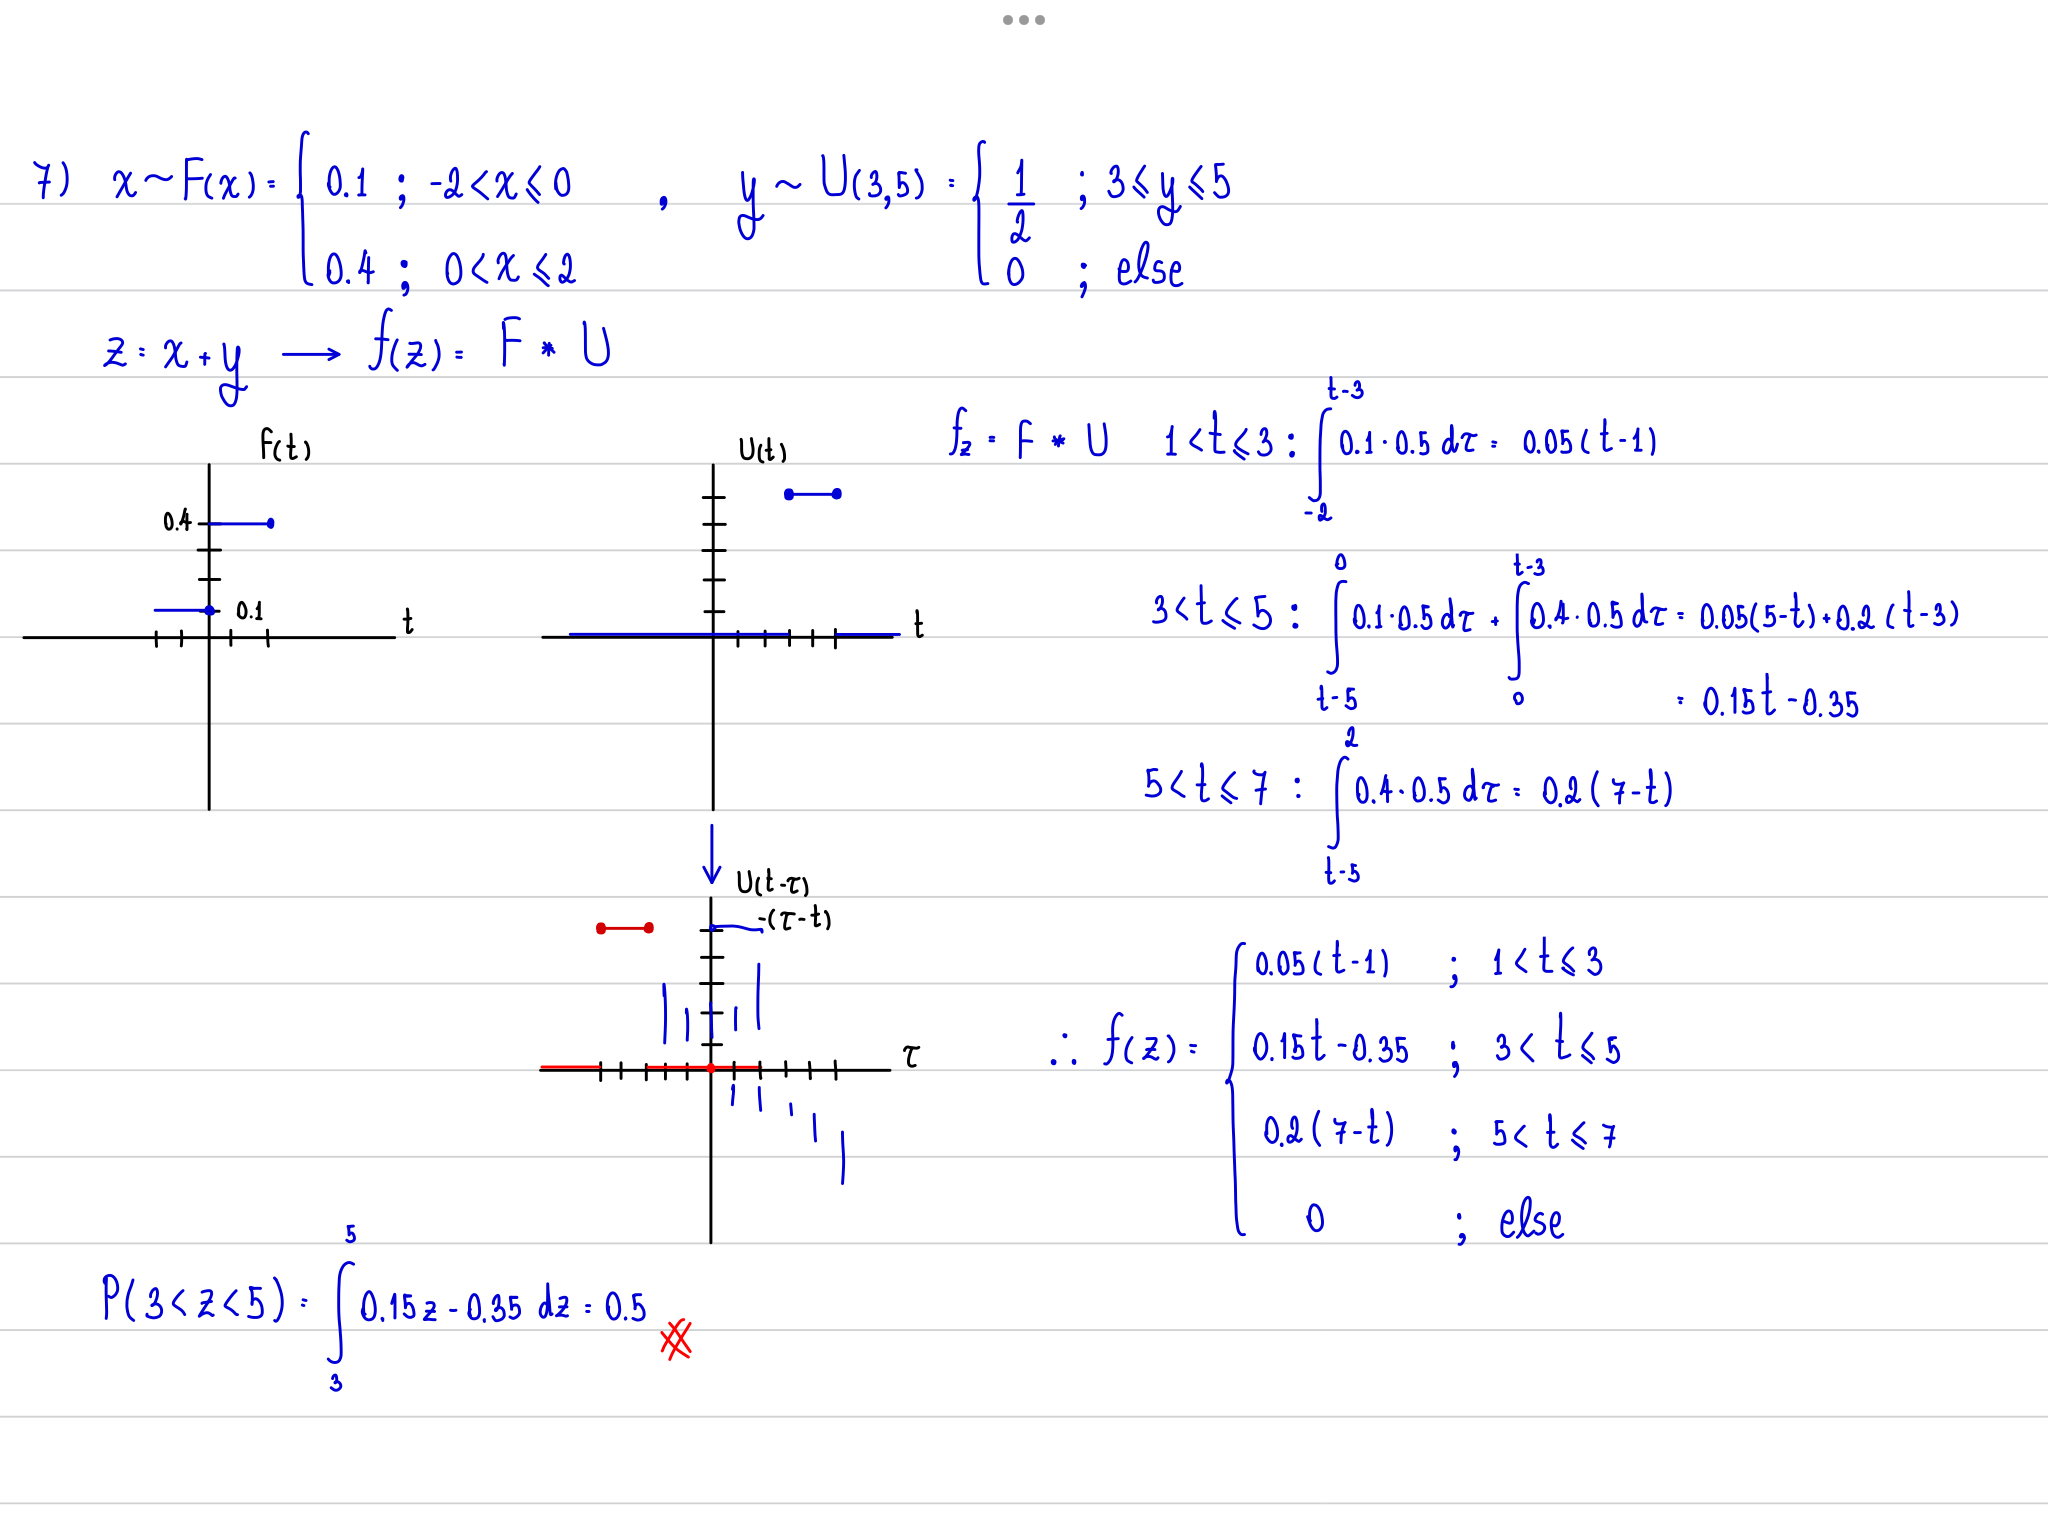 7) x ~ F(x) = { 0.1 ; -2 < x ⩽ 0 , y ~ U(3,5) = { 1/2 ; 3 ⩽ y ⩽ 5
0.4 ; 0 < x ⩽ 2 0 ; else
z = x + y ⟶ f(z) = F * U
F(t)
0.4
0.1
t
U(t)
t
U(t-τ)
-(τ-t)
τ
f_z = F * U 1 < t ⩽ 3 : ∫_{-2}^{t-3} 0.1 · 0.5 dτ = 0.05(t-1)
3 < t ⩽ 5 : ∫_{t-5}^{0} 0.1 · 0.5 dτ + ∫_{0}^{t-3} 0.4 · 0.5 dτ = 0.05(5-t) + 0.2(t-3)
= 0.15t - 0.35
5 < t ⩽ 7 : ∫_{t-5}^{2} 0.4 · 0.5 dτ = 0.2(7-t)
∴ f(z) = { 0.05(t-1) ; 1 < t ⩽ 3
0.15t - 0.35 ; 3 < t ⩽ 5
0.2(7-t) ; 5 < t ⩽ 7
0 ; else
P(3 < z < 5) = ∫_{3}^{5} 0.15z - 0.35 dz = 0.5